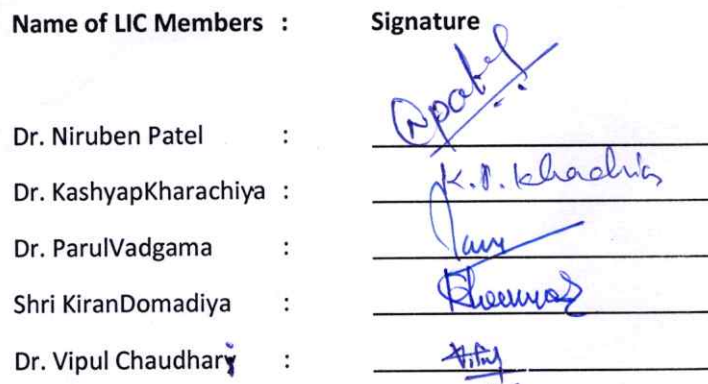 Name of LIC Members : Signature
Dr. Niruben Patel :
Dr. KashyapKharachiya : K.P.
Dr. ParulVadgama :
Shri KiranDomadiya :
Dr. Vipul Chaudhary :